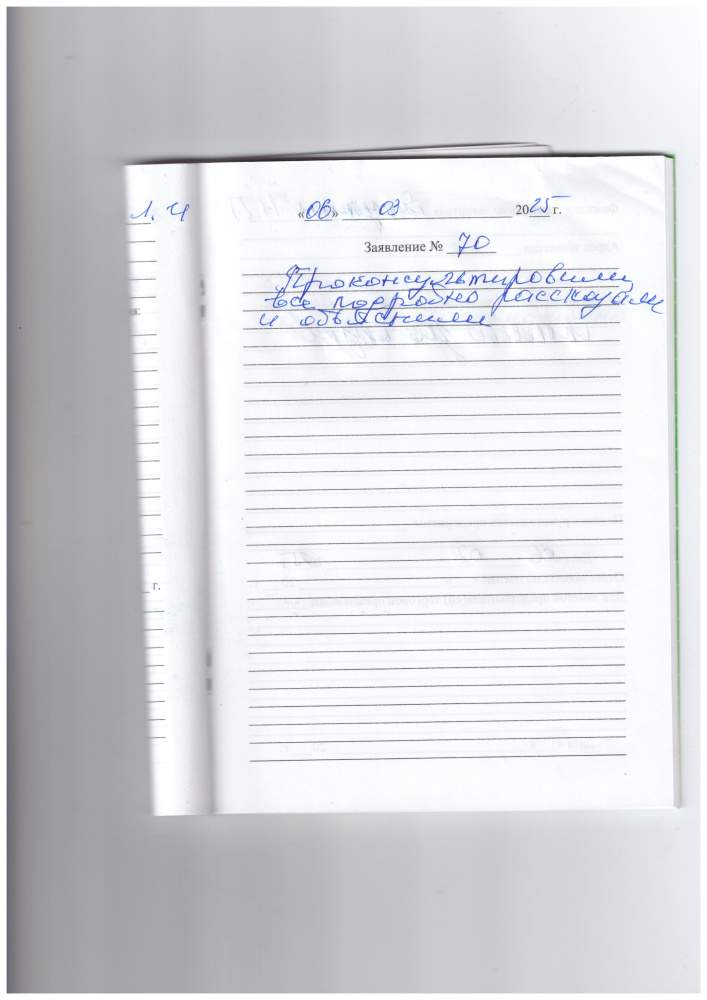 Л. Ч
«06» 03 2025 г.
Заявление № 70
Проконсультировали,
все подробно рассказали
и объяснили
г.